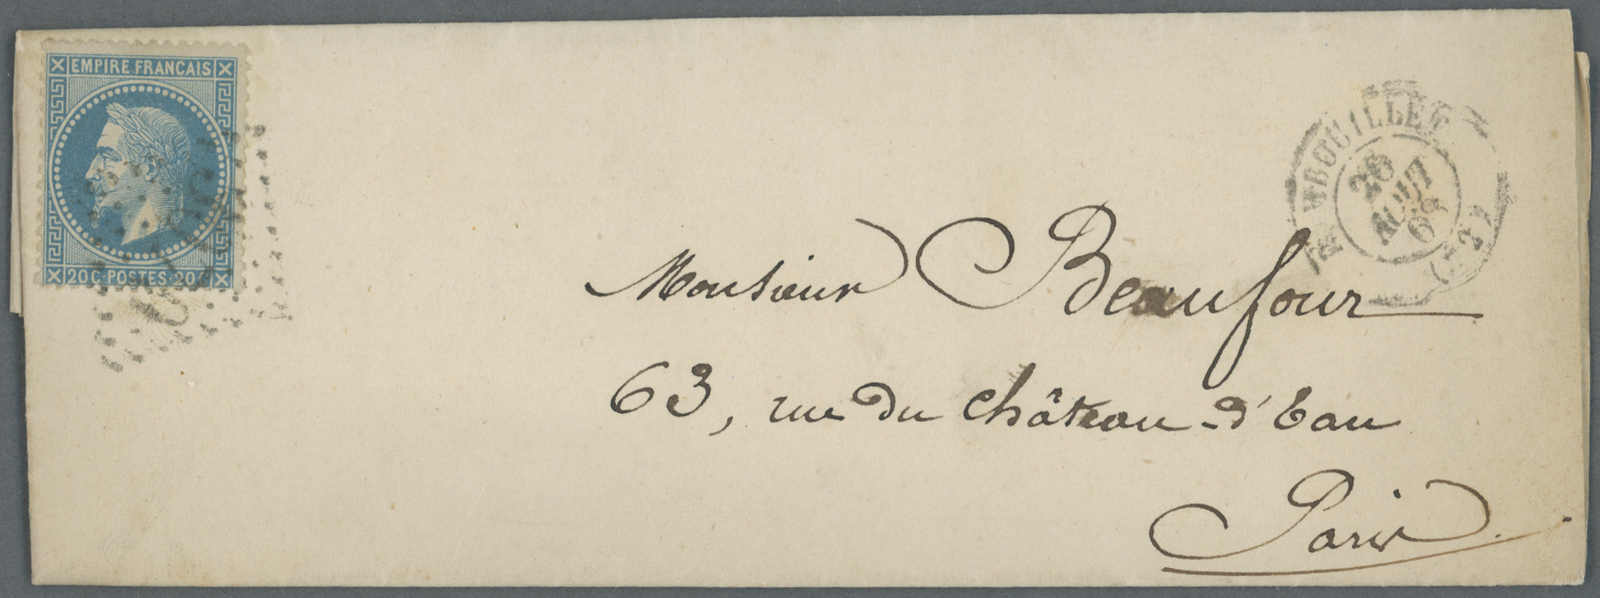 EMPIRE FRANCAIS
20 C · POSTES · 20
RAMBOUILLET
26
AOUT
68
(72)
Monsieur Beaufour
63, rue du Château-d'Eau
Paris